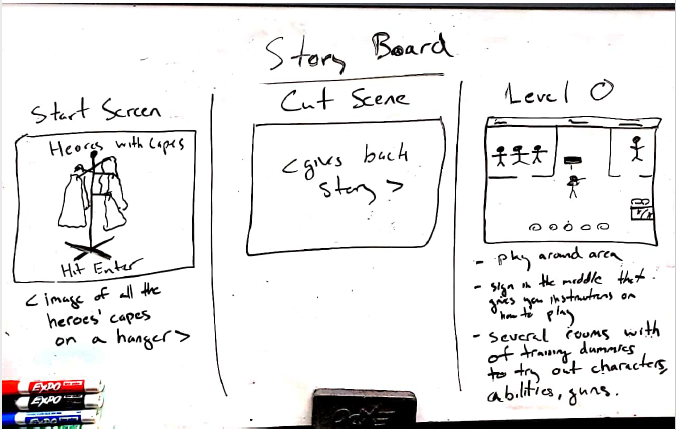 Story Board
Start Screen
Heores with Capes
Hit Enter
< image of all the
heroes' capes
on a hanger >
Cut Scene
< gives back
story >
Level 0
- play around area
- sign in the middle that
gives you instructions on
how to play
- several rooms with
of training dummies
to try out characters,
abilities, guns.
EXPO
EXPO
EXPO